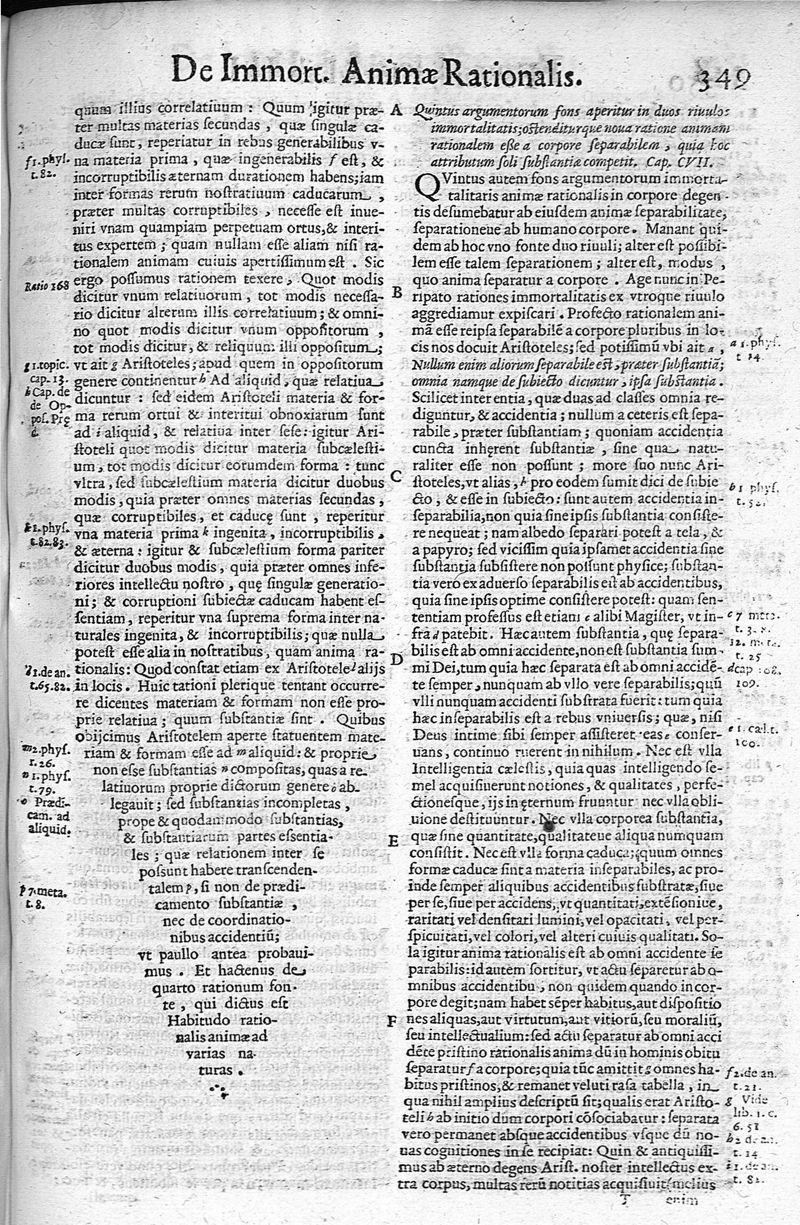 De Immort. Animæ Rationalis.
349
quum illius correlatiuum: Quum igitur præ-
ter multas materias secundas, quæ singulæ ca-
ducæ sunt, reperiatur in rebus generabilibus v-
na materia prima, quæ ingenerabilis f est, &
incorruptibilis æternam durationem habens; iam
inter formas rerum nostratiuum caducarum,
præter multas corruptibiles, necesse est inue-
niri vnam quampiam perpetuam ortus, & interi-
tus expertem; quam nullam esse aliam nisi ra-
tionalem animam cuiuis apertissimum est. Sic
ergo possumus rationem texere, Quot modis
dicitur vnum relatiuorum, tot modis necessa-
rio dicitur alterum illis correlatiuum; & omni-
no quot modis dicitur vnum oppositorum,
tot modis dicitur, & reliquum illi oppositum;
vt ait g Aristoteles; apud quem in oppositorum
genere continentur h Ad aliquid, quæ relatiua
dicuntur: sed eidem Aristoteli materia & for-
ma rerum ortui & interitui obnoxiarum sunt
ad i aliquid, & relatiua inter sese: igitur Ari-
stoteli quot modis dicitur materia subcælesti-
um, tot modis dicitur eorumdem forma: tunc
vltra, sed subcælestium materia dicitur duobus
modis, quia præter omnes materias secundas,
quæ corruptibiles, et caducę sunt, reperitur
vna materia prima k ingenita, incorruptibilis,
& æterna: igitur & subcælestium forma pariter
dicitur duobus modis, quia præter omnes infe-
riores intellectu nostro, quę singulæ generatio-
ni; & corruptioni subiectæ caducam habent es-
sentiam, reperitur vna suprema forma inter na-
turales ingenita, & incorruptibilis; quæ nulla
potest esse alia in nostratibus, quam anima ra-
tionalis: Quod constat etiam ex Aristotele l alijs
in locis. Huic rationi plerique tentant occurre-
re dicentes materiam & formam non esse pro-
prie relatiua; quum substantiæ sint. Quibus
obijcimus Aristotelem aperte statuentem mate-
riam & formam esse ad m aliquid: & proprie
non esse substantias n compositas, quas a re-
latiuorum proprie dictorum genere o ab-
legauit; sed substantias incompletas,
prope & quodammodo substantias,
& substantiarum partes essentia-
les; quæ relationem inter se
possunt habere transcenden-
talem p, si non de prædi-
camento substantiæ,
nec de coordinatio-
nibus accidentiū;
vt paullo antea probaui-
mus. Et hactenus de
quarto rationum fon-
te, qui dictus est
Habitudo ratio-
nalis animæ ad
varias na-
turas.
f 1. phys.
t. 82.
Ratio 168
g 1. topic.
cap. 13.
h Cap. de
de Op-
pos. Prę
d.
k 1. phys.
t. 82. 83.
l 1. de an.
t. 65. 82.
m 2. phys.
t. 26.
n 1. phys.
t. 79.
o Prædi-
cam. ad
aliquid.
p 7. meta.
t. 8.
A
B
C
D
E
F
Quintus argumentorum fons aperitur in duos riuulos
immortalitatis; ostenditurque noua ratione animam
rationalem esse a corpore separabilem, quia hoc
attributum soli substantiæ competit. Cap. CVII.
QVintus autem fons argumentorum immorta-
talitaris animæ rationalis in corpore degen-
tis desumebatur ab eiusdem animæ separabilitate,
separationeue ab humano corpore. Manant qui-
dem ab hoc vno fonte duo riuuli; alter est possibi-
lem esse talem separationem; alter est, modus,
quo anima separatur a corpore. Age nunc in Pe-
ripato rationes immortalitatis ex vtroque riuulo
aggrediamur expiscari. Profecto rationalem ani-
mā esse reipsa separabilē a corpore pluribus in lo-
cis nos docuit Aristoteles; sed potissimū vbi ait a,
Nullum enim aliorum separabile est, præter substantiā;
omnia namque de subiecto dicuntur, ipsa substantia.
Scilicet inter entia, quæ duas ad classes omnia re-
diguntur, & accidentia; nullum a ceteris est sepa-
rabile, præter substantiam; quoniam accidentia
cuncta inhęrent substantiæ, sine qua natu-
raliter esse non possunt; more suo nunc Ari-
stoteles, vt alias, b pro eodem sumit dici de subie
cto, & esse in subiecto: sunt autem accidentia in-
separabilia, non quid sine ipsis substantia consiste-
re nequeat; nam albedo separari potest a tela, &
a papyro; sed vicissim quia ipsamet accidentia sine
substantia subsistere non possunt physice; substan-
tia vero ex aduerso separabilis est ab accidentibus,
quia sine ipsis optime consistere potest: quam sen-
tentiam professus est etiam c alibi Magister, vt in-
fra d patebit. Hæc autem substantia, quę separa-
bilis est ab omni accidente, non est substantia sum-
mi Dei, tum quia hæc separata est ab omni accidē-
te semper, nunquam ab vllo vere separabilis; quū
vlli nunquam accidenti substrata fuerit: tum quia
hæc inseparabilis est a rebus vniuersis; quæ, nisi
Deus intime sibi semper assisteret eas e conser-
uans, continuo ruerent in nihilum. Nec est vlla
Intelligentia cælestis, quia quas intelligendo se-
mel acquisiuerunt notiones, & qualitates, perfe-
ctionesque, ijs in ęternum fruuntur nec vlla obli-
uione destituuntur. Nec vlla corporea substantia,
quæ sine quantitate, qualitateue aliqua numquam
consistit. Nec est vlla forma caduca; quum omnes
formæ caducæ sint a materia inseparabiles, ac pro-
inde semper aliquibus accidentibus substratæ, siue
per se, siue per accidens, vt quantitati, extēsioniue,
raritati vel densitati lumini, vel opacitati, vel per-
spicuitati, vel colori, vel alteri cuiuis qualitati. So-
la igitur anima rationalis est ab omni accidente se
parabilis: id autem sortitur, vt actu separetur ab o-
mnibus accidentibu, non quidem quando in cor-
pore degit; nam habet sēper habitus, aut dispositio
nes aliquas, aut virtutum, aut vitiorū, seu moraliū,
seu intellectualium: sed actu separatur ab omni acci
dēte pristino rationalis anima dū in hominis obitu
separatur f a corpore; quia tūc amittit g omnes ha-
bitus pristinos, & remanet veluti rasa tabella, in
qua nihil amplius descriptū sit; qualis erat Aristo-
teli h ab initio dum corpori cōsociabatur: separata
vero permanet absque accidentibus vsque dū no-
uas cognitiones in se recipiat: Quin & antiquissi-
mus ab æterno degens Arist. noster intellectus ex-
tra corpus, multas rerū notitias acquisiuit melius
enim
a 1. phys.
t. 14.
b 1 phys.
t. 52.
c 7 meta.
t. 3.
t. 25
d cap 108.
109.
e 1. cæl. t.
100.
f 2. de an.
t. 21.
g Vide
lib. 1. c.
6. 51
t. 14
t. 82.